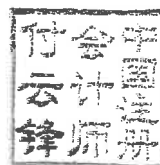 中国注册
会计师
付云锋